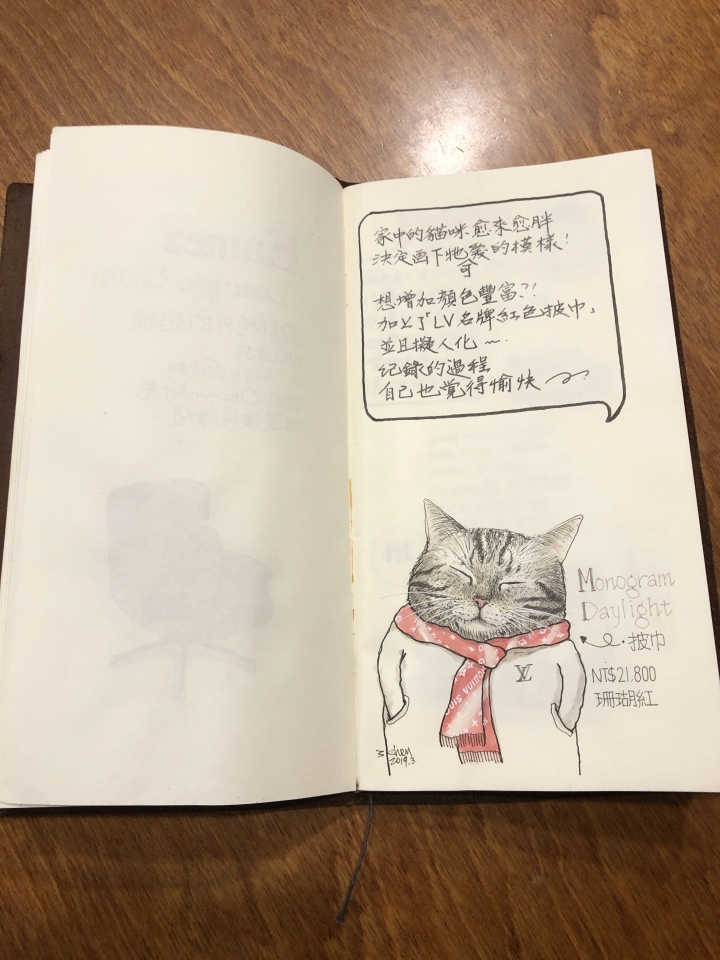 家中的貓咪愈來愈胖
決定画下牠可愛的模樣!
想增加顏色豐富?!
加上了LV名牌紅色披巾,
並且擬人化~.
纪錄的過程
自己也覺得愉快
Monogram
Daylight
披巾
LV
NT$21,800
珊瑚紅
LOUIS VUITTON
Shen
2019.3